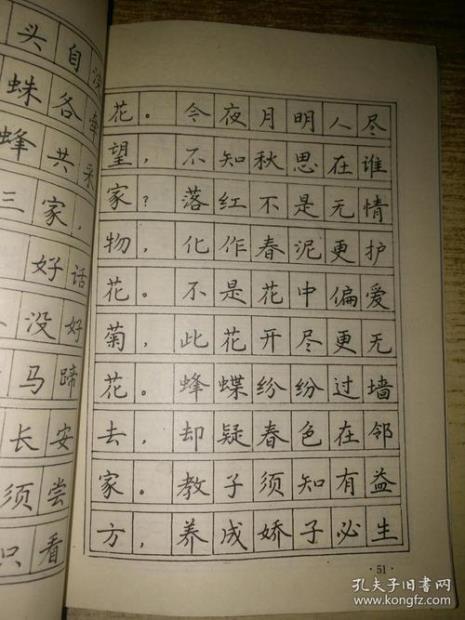 头自深
蛛各牵
蜂共采
三家,
好话
没好
马蹄
长安
须尝
只看
花。今夜月明人尽
望,不知秋思在谁
家?落红不是无情
物,化作春泥更护
花。不是花中偏爱
菊,此花开尽更无
花。蜂蝶纷纷过墙
去,却疑春色在邻
家。教子须知有益
方,养成娇子必生
·51·
孔夫子旧书网